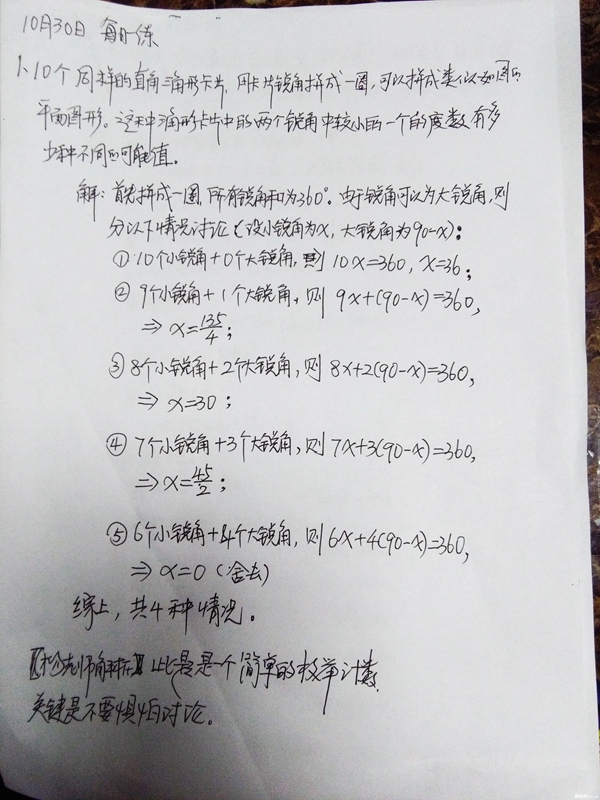 10月30日 每日一练
1、10个同样的直角三角形卡片,用卡片锐角拼成一圈,可以拼成类似如图的
平面图形。这种三角形卡片中的两个锐角中较小的一个的度数有多
少种不同的可能值。
解:首先拼成一圈,所有锐角和为360°。由于锐角可以为大锐角,则
分以下情况讨论(设小锐角为x,大锐角为90-x):
① 10个小锐角+0个大锐角,则 10x=360, x=36;
② 9个小锐角+1个大锐角,则 9x+(90-x)=360,
⇒ x=135/4;
③ 8个小锐角+2个大锐角,则 8x+2(90-x)=360,
⇒ x=30;
④ 7个小锐角+3个大锐角,则 7x+3(90-x)=360,
⇒ x=45/2;
⑤ 6个小锐角+4个大锐角,则 6x+4(90-x)=360,
⇒ x=0(舍去)
综上,共4种情况。
老师解析】此题是一个简单的枚举计数,
关键是不要惧怕讨论。